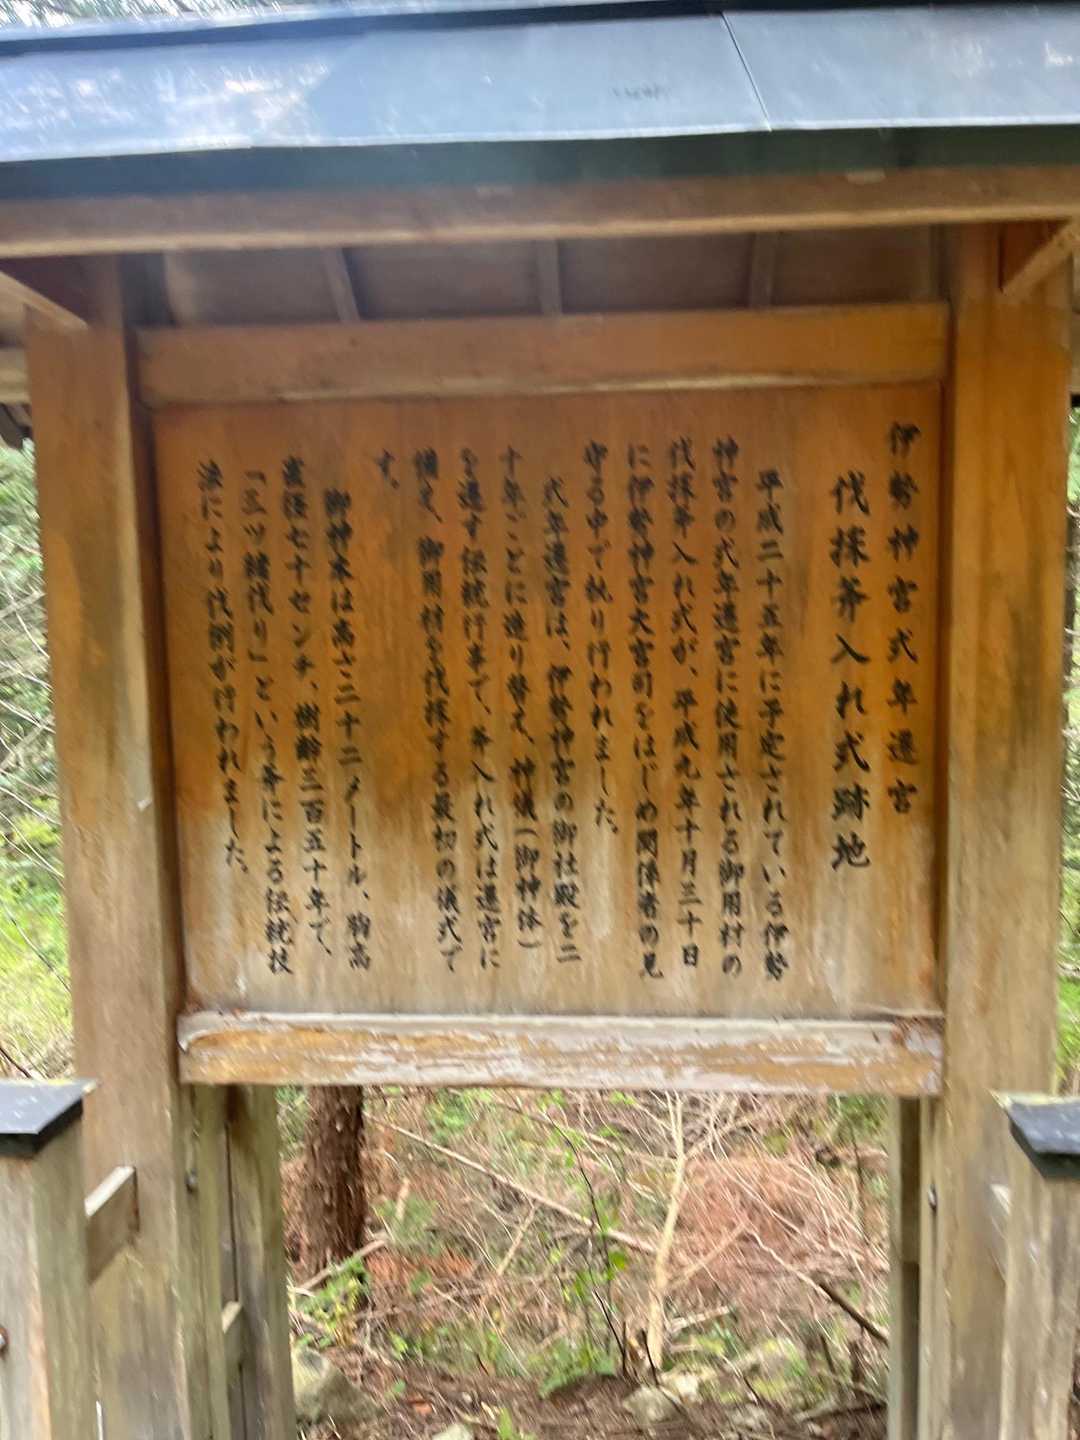 伊勢神宮式年遷宮
伐採斧入れ式跡地
平成二十五年に予定されている伊勢
神宮の式年遷宮に使用される御用材の
伐採斧入れ式が、平成九年十月三十日
に伊勢神宮大宮司をはじめ関係者の見
守る中で執り行われました。
式年遷宮は、伊勢神宮の御社殿を二
十年ごとに造り替え、神儀(御神体)
を遷す伝統行事で、斧入れ式は遷宮に
備え、御用材を伐採する最初の儀式で
す。
御神木は高さ二十二メートル、胸高
直径七十センチ、樹齢二百五十年で、
「三ツ緒伐り」という斧による伝統技
法により伐倒が行われました。